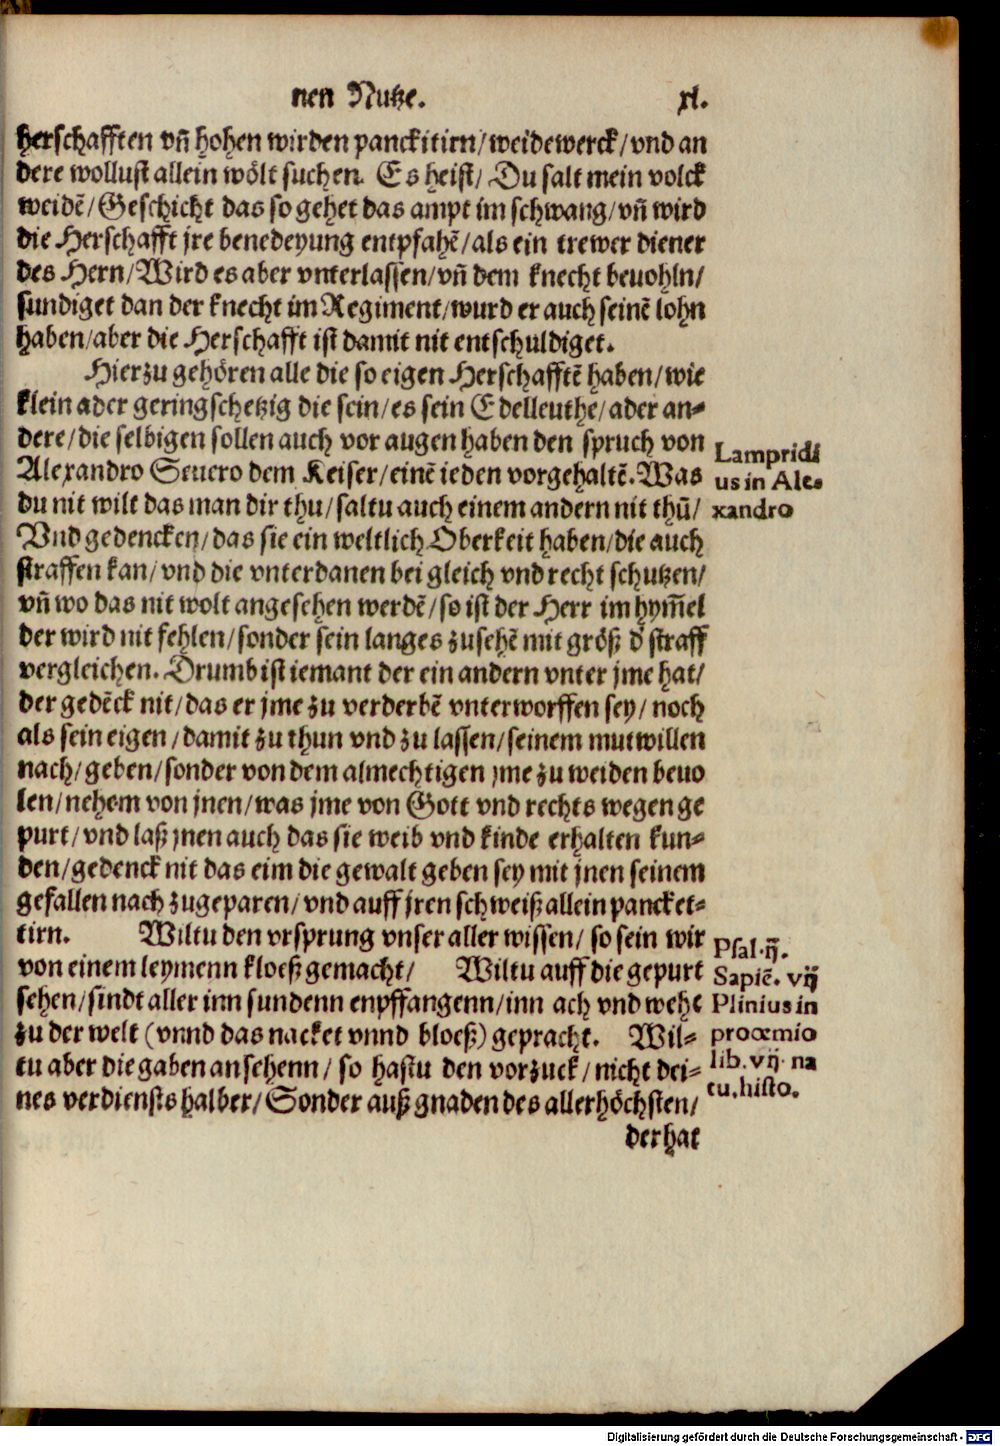 nen Nutze.
xl.
herschafften vñ hohen wirden panckitirn/weidewerck/vnd an
dere wollust allein wölt suchen. Es heist/ Du salt mein volck
weidē/Geschicht das so gehet das ampt im schwang/vñ wird
die Herschafft jre benedeyung entpfahē/als ein trewer diener
des Hern/Wird es aber vnterlassen/vñ dem knecht beuohln/
sundiget dan der knecht im Regiment/wurd er auch seinē lohn
haben/aber die Herschafft ist damit nit entschuldiget.
Hierzu gehören alle die so eigen Herschafftē haben/wie
klein ader geringschetzig die sein/es sein Edelleuthe/ader an-
dere/die selbigen sollen auch vor augen haben den spruch von
Alexandro Seuero dem Keiser/einē ieden vorgehaltē.Was
du nit wilt das man dir thu/saltu auch einem andern nit thū/
Vnd gedencken/das sie ein weltlich Oberkeit haben/die auch
straffen kan/vnd die vnterdanen bei gleich vnd recht schutzen/
vñ wo das nit wolt angesehen werdē/so ist der Herr im hym̄el
der wird nit fehlen/sonder sein langes zusehē mit größ d' straff
vergleichen. Drumb ist iemant der ein andern vnter jme hat/
der gedēck nit/das er jme zu verderbē vnterworffen sey/noch
als sein eigen/damit zu thun vnd zu lassen/seinem mutwillen
nach/geben/sonder von dem almechtigen jme zu weiden beuo
len/nehem von jnen/was jme von Gott vnd rechts wegen ge
purt/vnd laß jnen auch das sie weib vnd kinde erhalten kun-
den/gedenck nit das eim die gewalt geben sey mit jnen seinem
gefallen nach zugeparen/vnd auff jren schweiß allein pancket-
tirn. Wiltu den vrsprung vnser aller wissen/ so sein wir
von einem leymenn kloeß gemacht/ Wiltu auff die gepurt
sehen/sindt aller inn sundenn enpffangenn/inn ach vnd wehe
zu der welt (vnnd das nacket vnnd bloeß) gepracht. Wil-
tu aber die gaben ansehenn/ so hastu den vorzuck/nicht dei-
nes verdiensts halber/Sonder auß gnaden des allerhöchsten/
der hat
Lampridi
us in Ale-
xandro
Psal.ij.
Sapiē. vij
Plinius in
proœmio
lib. vij. na
tu.histo.
Digitalisierung gefördert durch die Deutsche Forschungsgemeinschaft - DFG